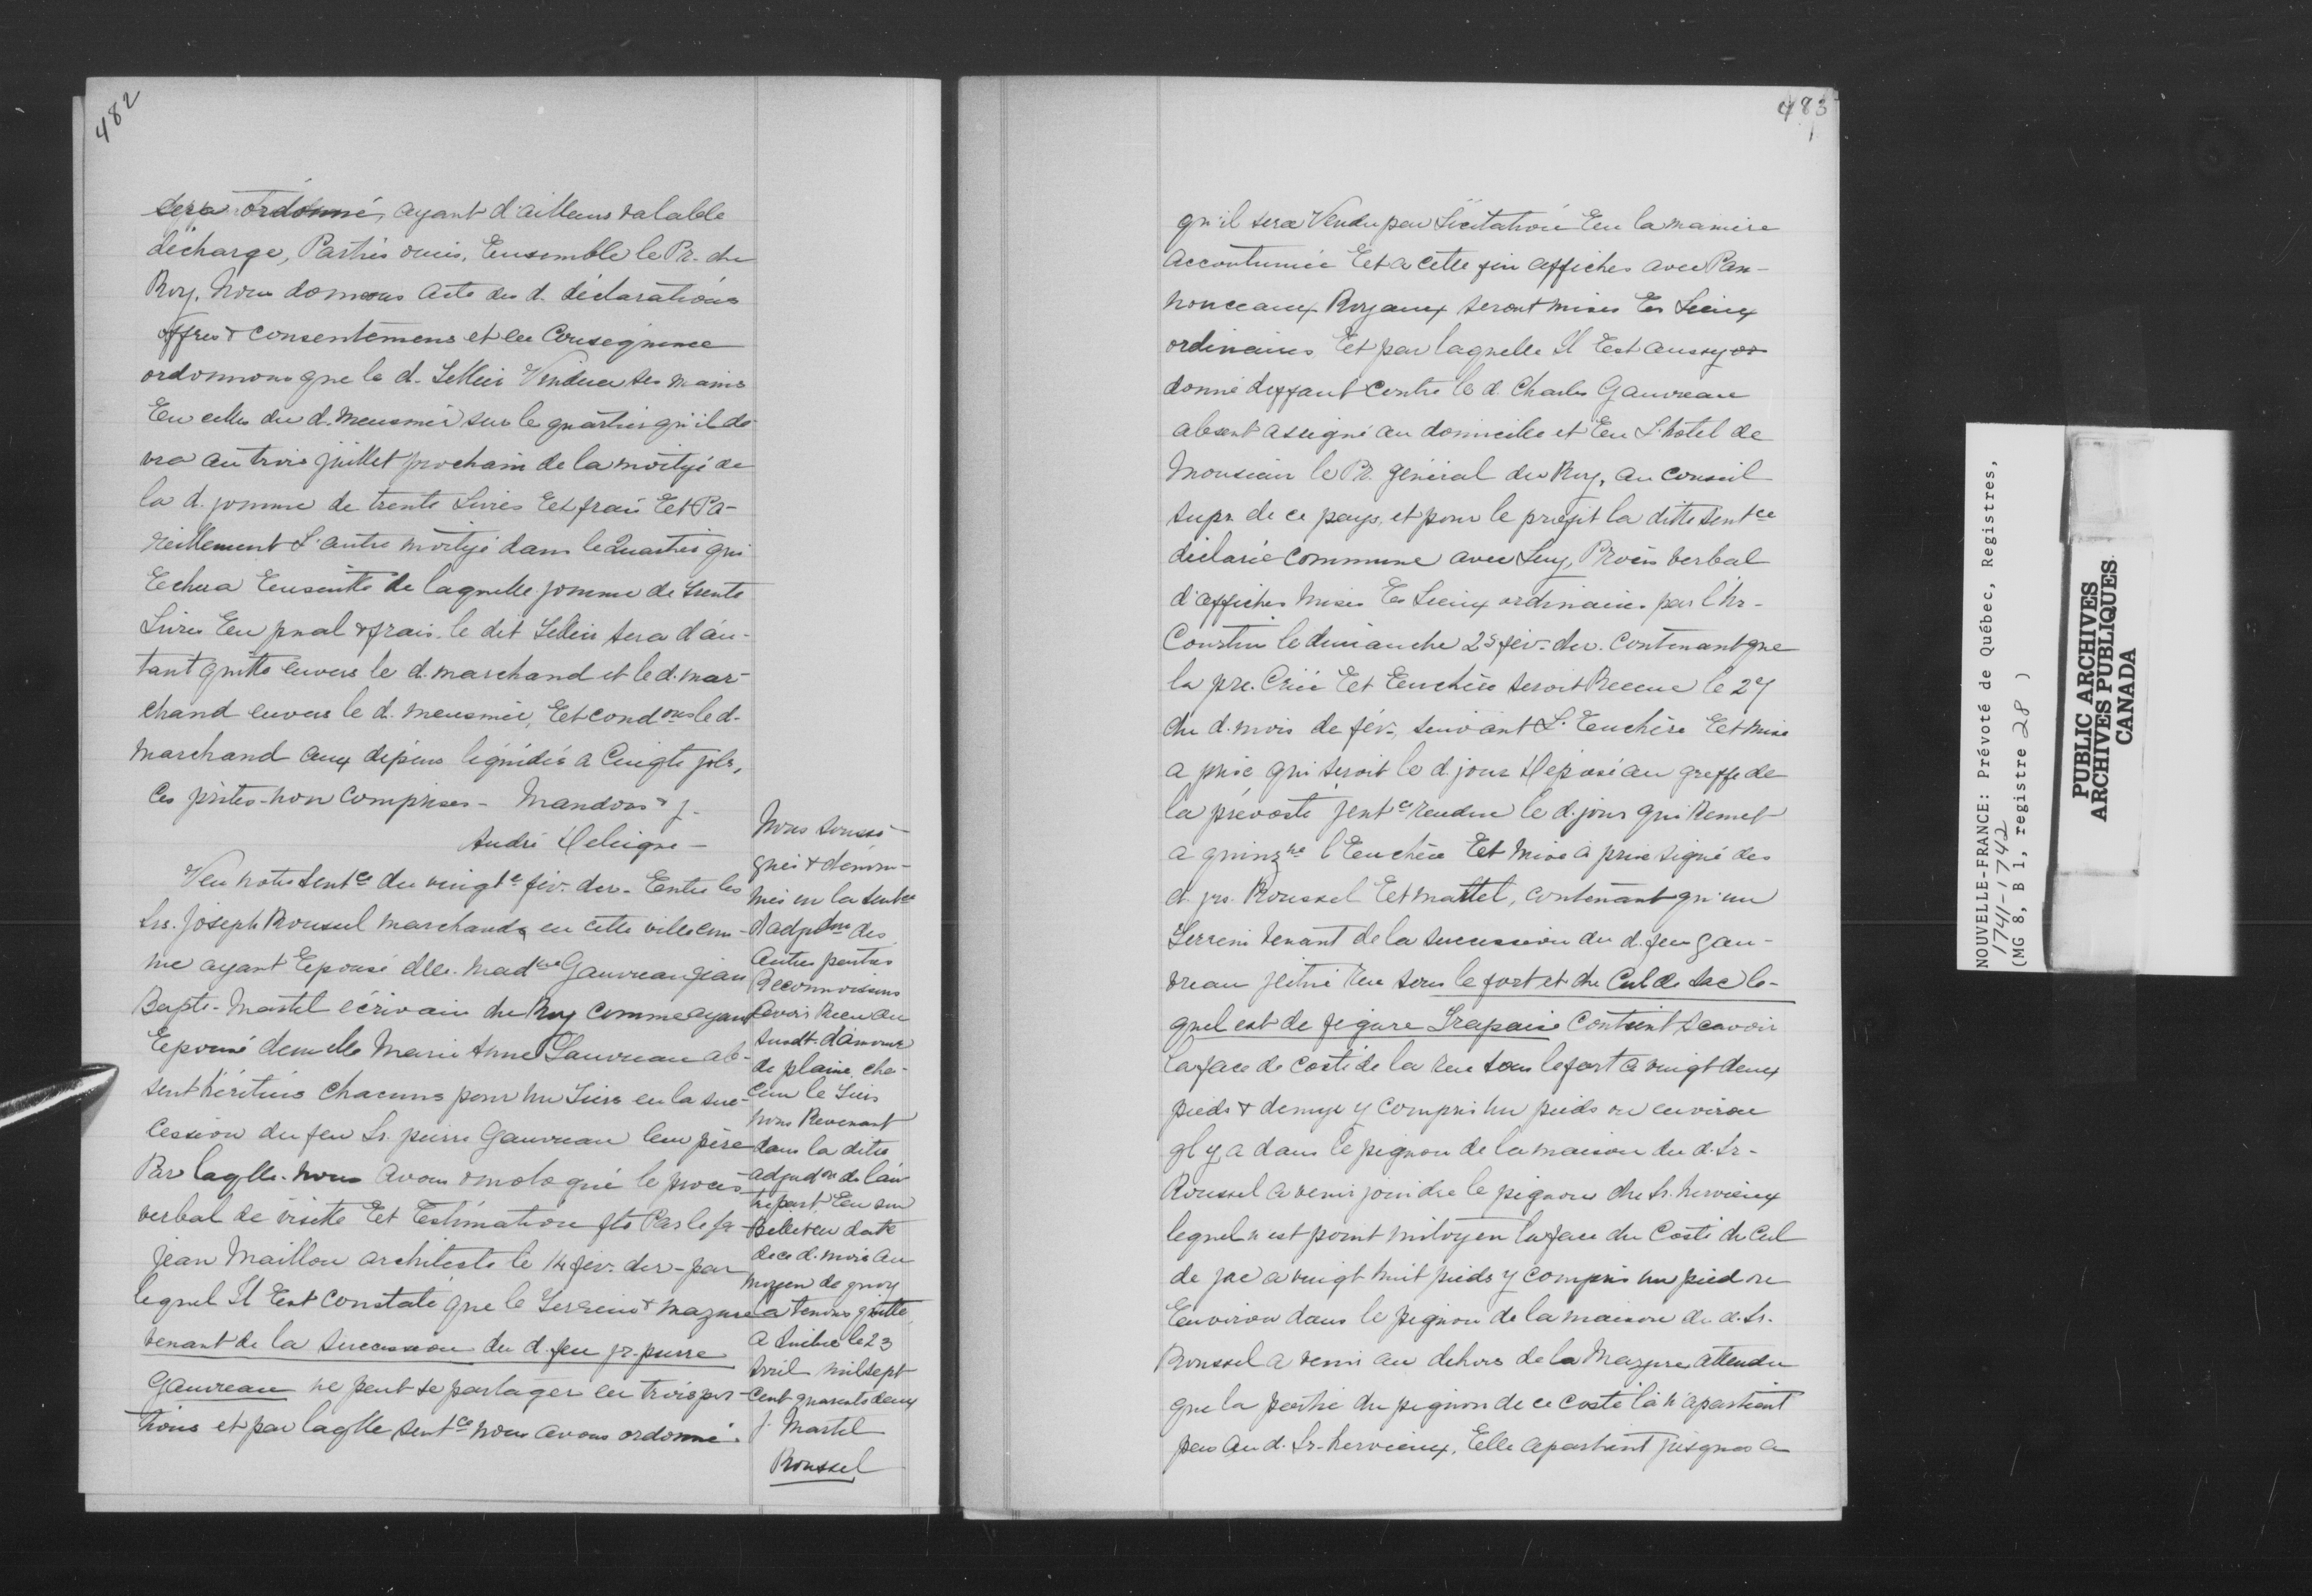 482
sera ordonné, ayant d'ailleurs valable
décharge, Parties ouies, Ensemble le Pr. du
Roy, Nous donnons acte des d. déclarations
offres & consentemens et en Conséquence
ordonnons que le d. Lellier Videra ses mains
En celles du d. Meusnier sur le quartier qu'il de
vra au trois juillet prochain de la moityé de
la d. somme de trente Livres Et frais Et Pa-
reillement L'autre moityé dans le Quartier qui
Echera Ensuitte de laquelle somme de trente
Livres En pnal & frais le dit Lellier sera d'au-
tant quitte envers le d. marchand et le d. mar-
chand envers le d. meusnier, Et condons le d.
Marchand aux dépens liquidés a Cinqte sols,
Ces pntes non comprises - Mandons & j.
André Deleigne -
Veu notre sentce du vingte fév. der. Entre les
Srs. Joseph Roussel marchand en cette ville com-
me ayant Epousé dlle. Madne Gauvreau jean
Bapte. Martel écrivain du Roy Comme ayant
Epousé demelle Marie Anne Gauvreau ab-
sent héritiers chacuns pour un Tiers en la suc-
cession du feu Sr. pierre Gauvreau leur père
Par laqlle. nous avons omologué le procès
verbal de visitte Et Estimation fte Par le sr
Jean Maillou architecte le 14 fév. der - par
lequel Il Est constaté que le Terrein & mazure
venant de la succession du d. feu sr. pierre
Gauvreau ne peut se partager en trois por-
tions et par laqlle sentce nous avons ordonné
Nous soussi-
gnés & dénom-
més en la sentce
d'adjudon des
autres parts
Reconnoissons
avoir Receu du
susdt. d'amour
de plaine, cha-
cun le Tiers
nous Revenant
dans la dite
adjudon de l'au-
tre part, En son
Billet en date
de ce d. mois au
moyen de quoy
la tenons quitte
a Québec le 23
Avril mil sept
cent quarante deux
J. Martel
Roussel
483
qu'il sera Vendu par Licitation En la manière
accoutumée Et a cette fin affiches avec Pan-
nonceaux Royaux seront mises Es Lieux
ordinaires Et par laquelle Il Est aussy or
donné deffaut contre le d. Charles Gauvreau
absent assigné au domicile et En L'hôtel de
Monsieur le Pr. général du Roy, au Conseil
supr. de ce pays, et pour le profit la ditte sentce
déclarée commune avec Luy, Procès verbal
d'affiches mises Es Lieux ordinaires par l'hr.
Courtin le dimanche 25 fév. der. Contenant que
la pre. Criée Et Enchère seroit Receue le 27
du d. mois de fév., suivant L'Enchère Et mise
a prix qui seroit le d. jour Déposé au greffe de
la prévosté sentce rendue le d. jour qui Remet
a quinzne l'Enchère Et Mise à prix signé des
d. srs. Roussel Et Martel, contenant qu'un
Terrein venant de la succession du d. feu Gau-
vreau scitué rue sous le fort et du Cul de Sac le-
quel est de figure Trapaise Contient Scavoir
La face de costé de la rue sous le fort a vingt deux
pieds & demye y compris un pieds ou environ
ql y a dans le pignon de la maison du d. Sr.
Roussel a venir joindre le pignon du Sr. hervieux
lequel n'est point mitoyen la face du Costé du Cul
de sac a vingt huit pieds y compris un pied ou
Environ dans le pignon de la maison du d. Sr.
Roussel a venir au dehors de la Mazure attendu
que la partie du pignon de ce costé là n'apartient
pas au d. Sr. hervieux, Elle apartient jusques a
NOUVELLE-FRANCE: Prévoté de Québec, Registres,
1741-1742
(MG 8, B 1, registre 28 )
PUBLIC ARCHIVES
ARCHIVES PUBLIQUES
CANADA